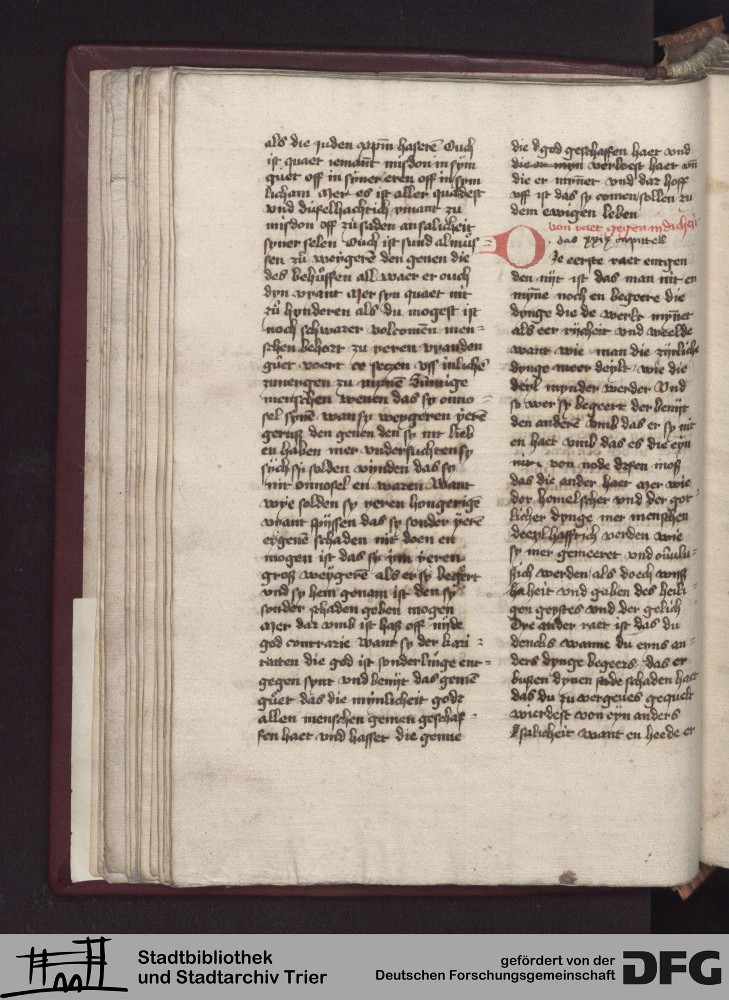 als die juden xppm̄ hasserē Ouch
ist quaet iemant misdon in sym
guet off in syner eren off in sym
licham Mer es ist aller quadest
vnd dufelhachtich ymant zu
misdon off zu saden an salicheit
syner selen Ouch ist sund almůs
sen zu weygerē den genen die
des behůffen all waer er ouch
dyn vyant Mer syn quaet nit
zů hynderen als du mogest ist
noch schwarer volcomen men-
schen behort zu yeren vyanden
gůet
zunergen zu Sůmige
menschen wenen das sy onno-
sel synē wan sy weygeren yerē
den genen den sy nit lieb
en haben mer vndersuchten sy
sich sy solden vynden das sy
nit onnosel en waren Want
wye solden sy yeren hongerigē
vyant spijssen das sy sonder yerē
eygenē schaden nit doen en
mogen ist das sy ym yeren
groß weygerē als er sy begert
vnd sy hem genam ist den sy
sonder schaden geben mogen
Mer dar vmb ist haß off nyde
god contrarie want sy der kari-
taten die god ist sonderlinge ent-
gegen synt vnd benijt das gemē
gůet das die mynlicheit godz
allen menschen gemen geschaf-
fen haet vnd hasset die genne
die d god geschaffen haet vnd
die er verloest haet vn̄
die er mynnet vnd dar hoff
vff ist das sy comen sollen zu
dem ewigen leben
von raet gegen nidicheit
das xxix cappittels
Die eerste raet entgen
den nijt ist das man nit en
mynne noch en begeere die
dynge die de werlt mynnet
als eer rijcheit vnd weelde
want wie man die zijtliche
dynge meer deylt wie die
deyl mynder werder Vnd
so wer sy begeert der benijt
den anderē vmb das er sy nit
en haet vmb das es die eyn
nit von node derfen moß
das die ander haet Mer wie
der hemelscher vnd der got-
licher dynge mer menschen
deeylhafftich werden wie
sy mer gemeeret vnd
werden als doech wijß
heit vnd gaben des heili-
gen geystes vnd der gelich
Dye ander raet ist das du
dencks wanne du eyns an-
ders dynge begeers das er
busten dynen schade schaden haet
das du zu vergeues gequelt
wierdest von eyn anders
salicheit want en heede er
Stadtbibliothek
und Stadtarchiv Trier
gefördert von der
Deutschen Forschungsgemeinschaft
DFG